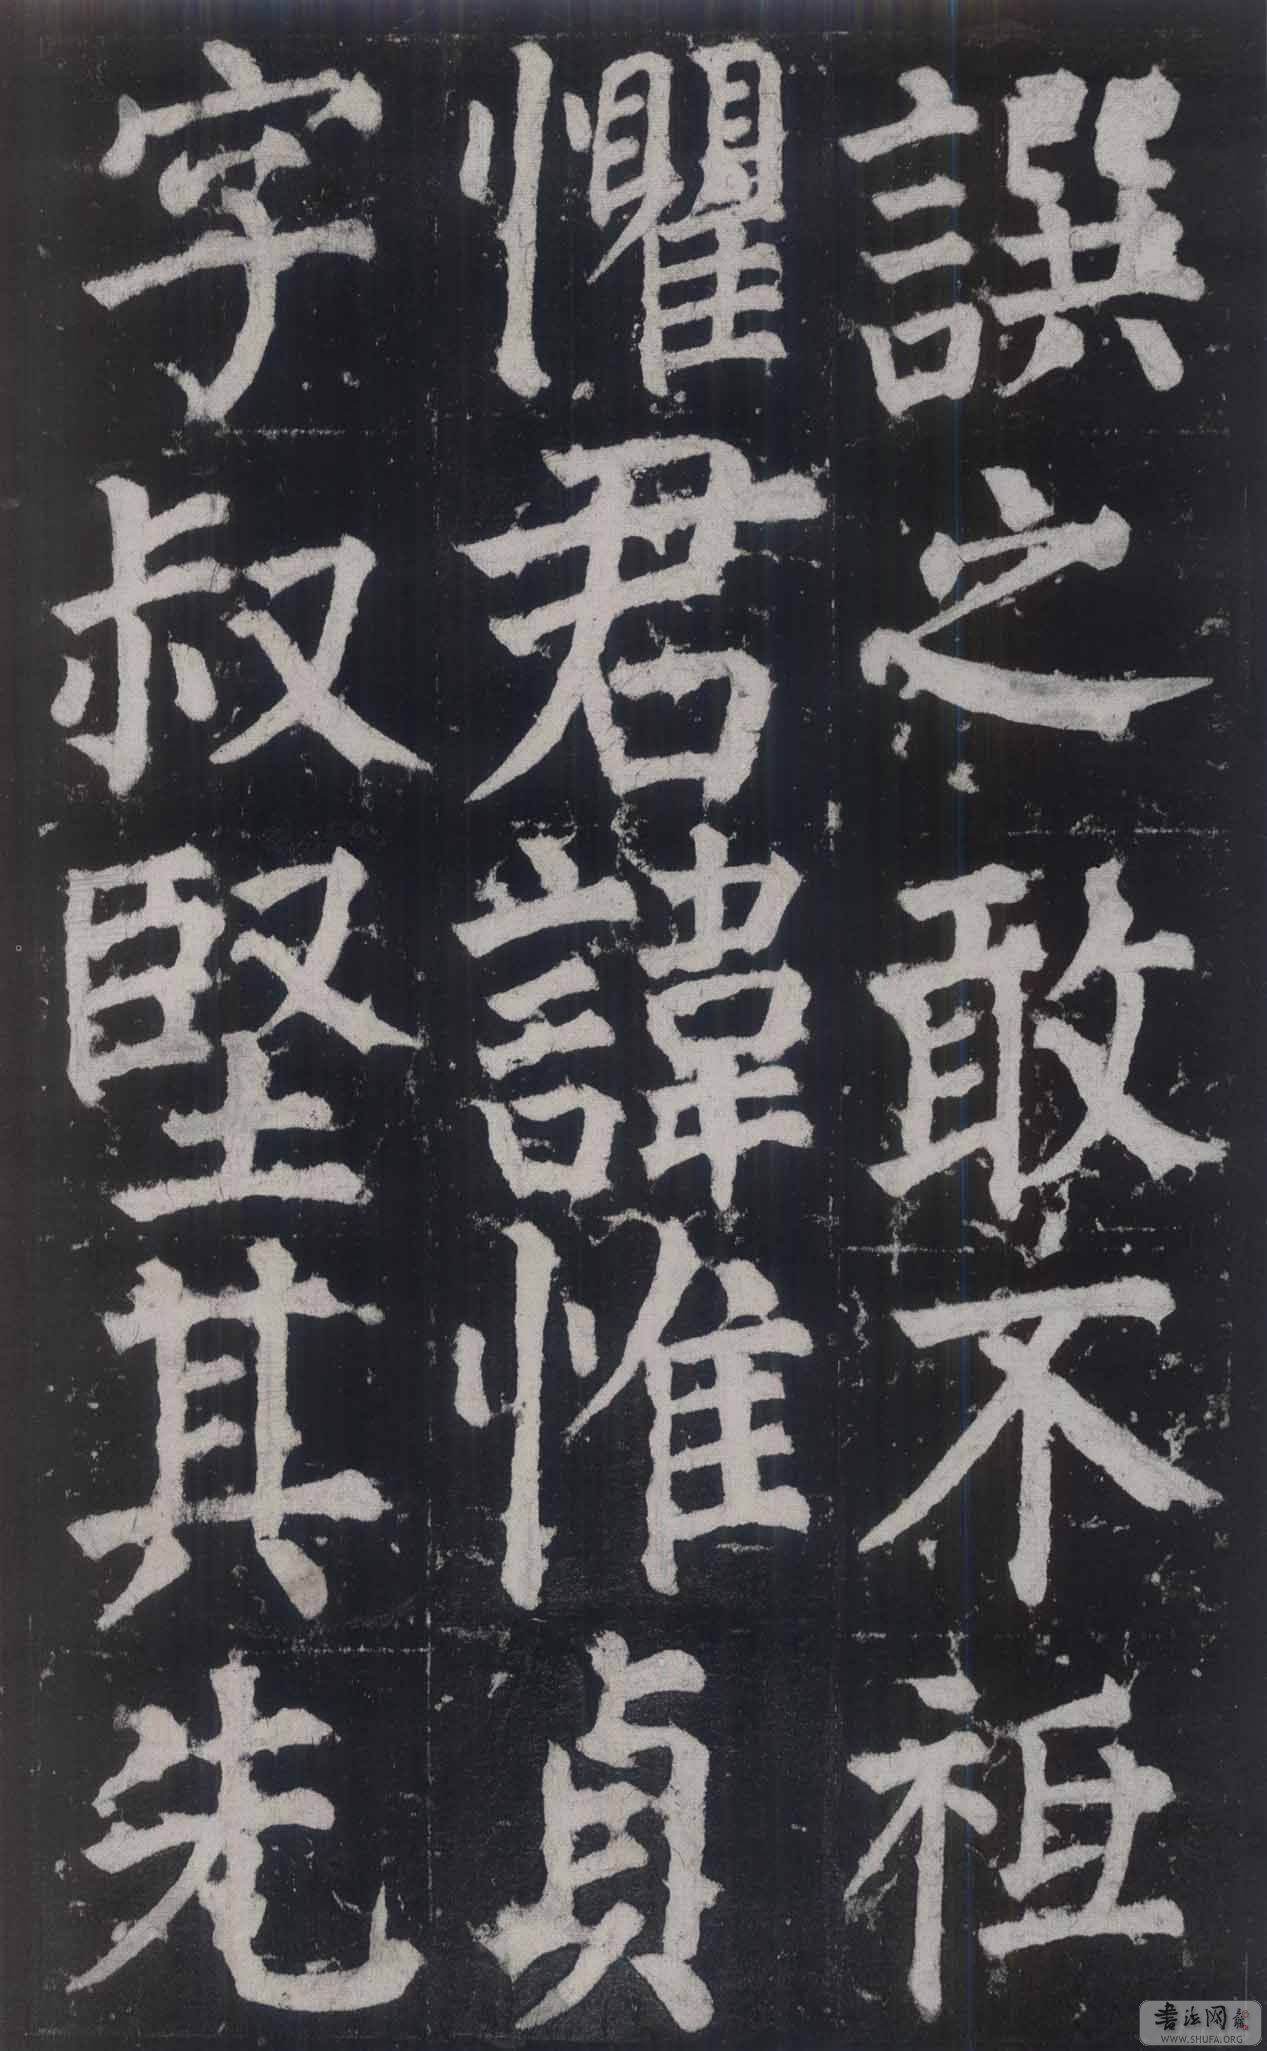 譔之敢不祗
懼君諱惟貞
字叔堅其先
书法网
WWW.SHUFA.ORG